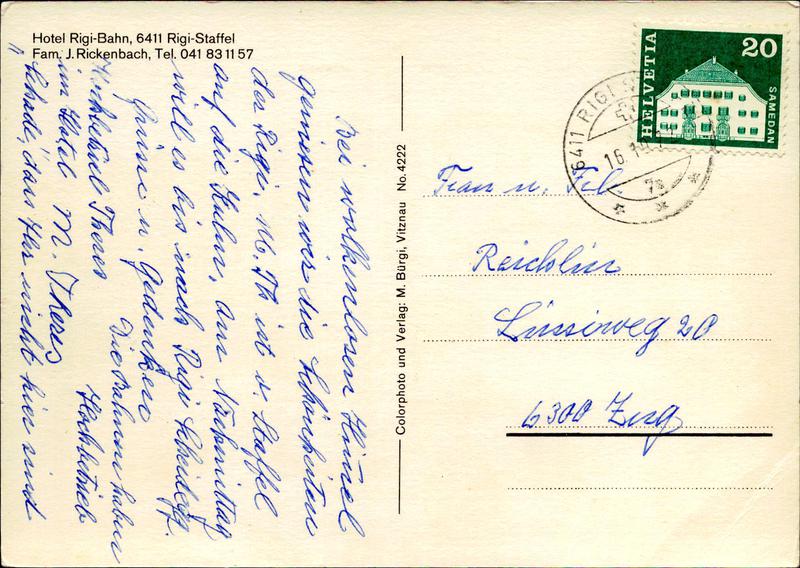 Hotel Rigi-Bahn, 6411 Rigi-Staffel
Fam. J. Rickenbach, Tel. 041 83 11 57
Bei wolkenlosem Himmel
geniessen wir die Schönheiten
der Rigi. M. Th ist v. Staffel
auf die Kulm, am Nachmittag
will es bis nach Rigi Scheidegg.
Grüsse u. Gedanken
Die Bahnen haben
Hochbetrieb
Theres
im Hotel M. Theres
Schade, dass Ihr nicht hier sind
Colorphoto und Verlag: M. Bürgi, Vitznau No. 4222
HELVETIA
20
SAMEDAN
6411 RIGI
16.10
Frau u. Frl.
Reichlin
Lüssiweg 20
6300 Zug